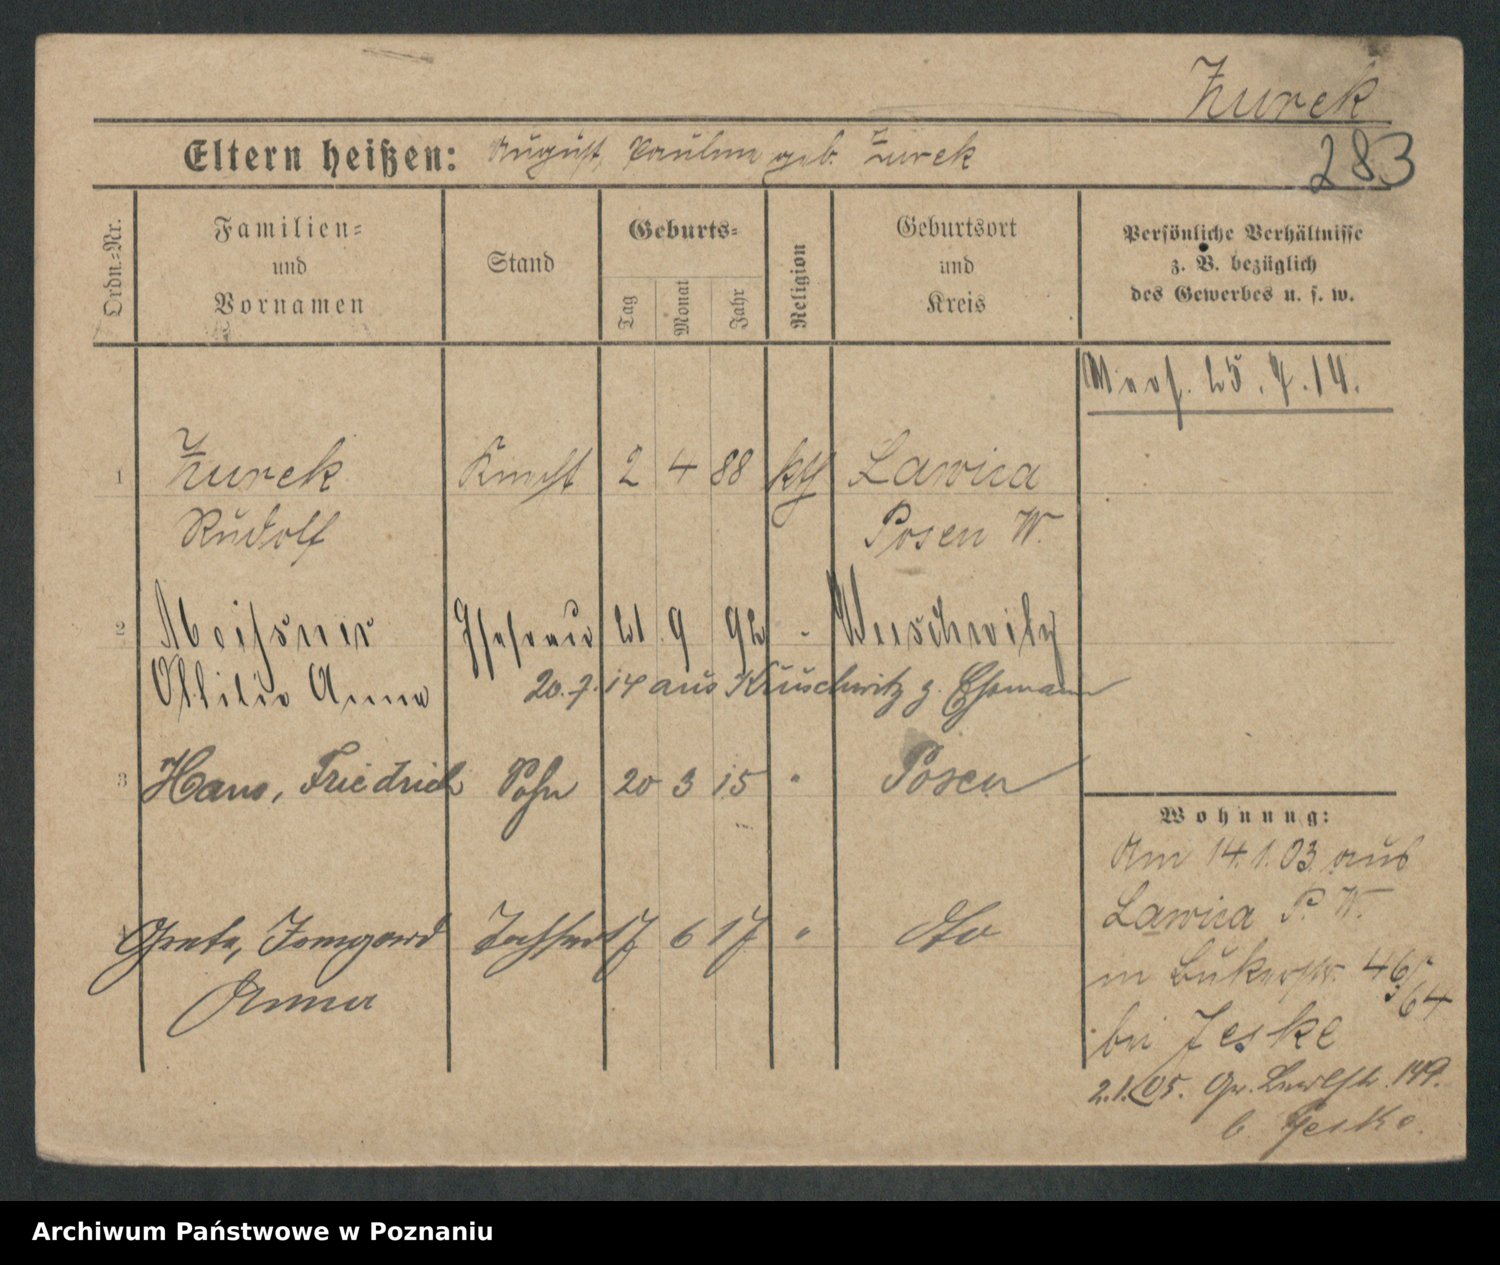 Zurek
283
Eltern heißen: August, Pauline geb. Zurek
Ordn.-Nr.
Familien- und Vornamen
Stand
Geburts-
Tag
Monat
Jahr
Religion
Geburtsort und Kreis
Persönliche Verhältnisse
z. B. bezüglich
des Gewerbes u. s. w.
25.7.14.
1 Zurek 2 4 88 kth Lawica
Rudolf Posen W.
2 Meissner Ehefrau 21 9 92 "
Ottilie Anna 20.7.14 aus Kuschwitz z. Ehemann
3 Hans, Friedrich Sohn 20 3 15 " Posen
Grete, Irmgard Tochter 17 6 17 " dto
Anna
Wohnung:
Am 14.1.03 aus
Lawica P. W.
in 46/
64
bei Jeske
2.1.05. Gr. 149.
b. Jeske.
Archiwum Państwowe w Poznaniu